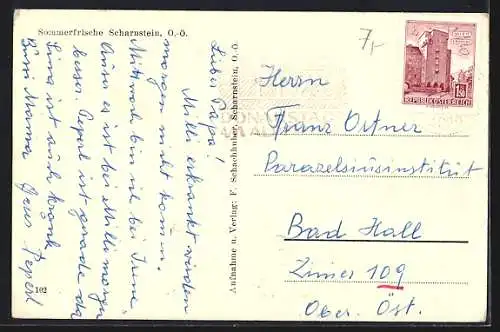 Sommerfrische Scharnstein, O.-Ö.
7,-
Lieber Papa!
Milli erkrankt werden
morgen nicht kommen.
Mittwoch bin ich bei Irene.
Auser es ist bei Milli morgen
besser. Peperl ist gerade da
Lina ist auch krank
Bussi Mamma Gruss Peperl
102
Aufnahme u. Verlag: F. Schachhuber, Scharnstein, O.-Ö.
REPUBLIK ÖSTERREICH
Herrn
Franz Ortner
Parazelsiusinstitut
Bad Hall
Zimer 109
Ober. Öst.